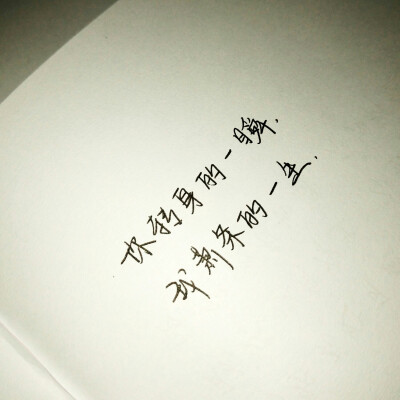 你转身的一瞬.
我萧条的一生.